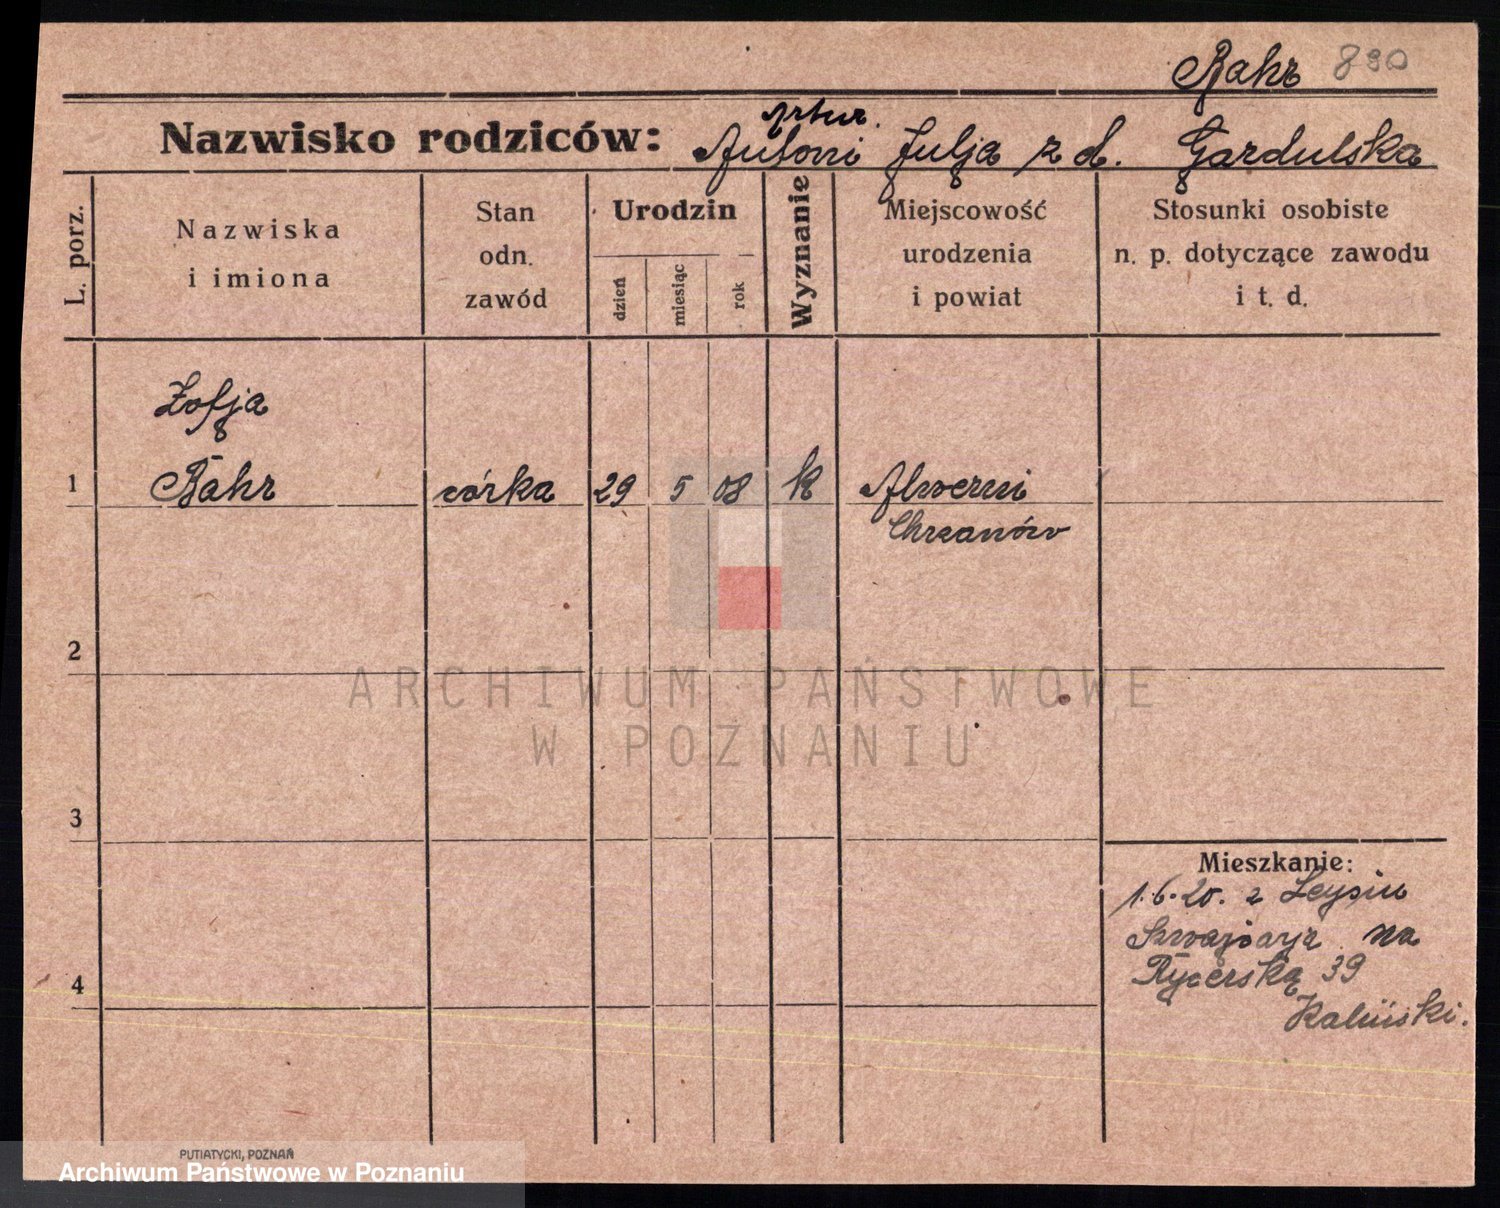 Bahr 890
Artur.
Nazwisko rodziców: Antoni Julja z d. Gardulska
L. porz.
Nazwiska
i imiona
Stan
odn.
zawód
Urodzin
dzień
miesiąc
rok
Wyznanie
Miejscowość
urodzenia
i powiat
Stosunki osobiste
n. p. dotyczące zawodu
i t. d.
Zofja
1 Bahr córka 29 5 08 k Alwerni
Chrzanów
2
ARCHIWUM PAŃSTWOWE
W POZNANIU
3
Mieszkanie:
1.6.20. z Leysin
Szwajcarja na
4 Rycerską 39
Kaliński.
PUTIATYCKI, POZNAŃ
Archiwum Państwowe w Poznaniu